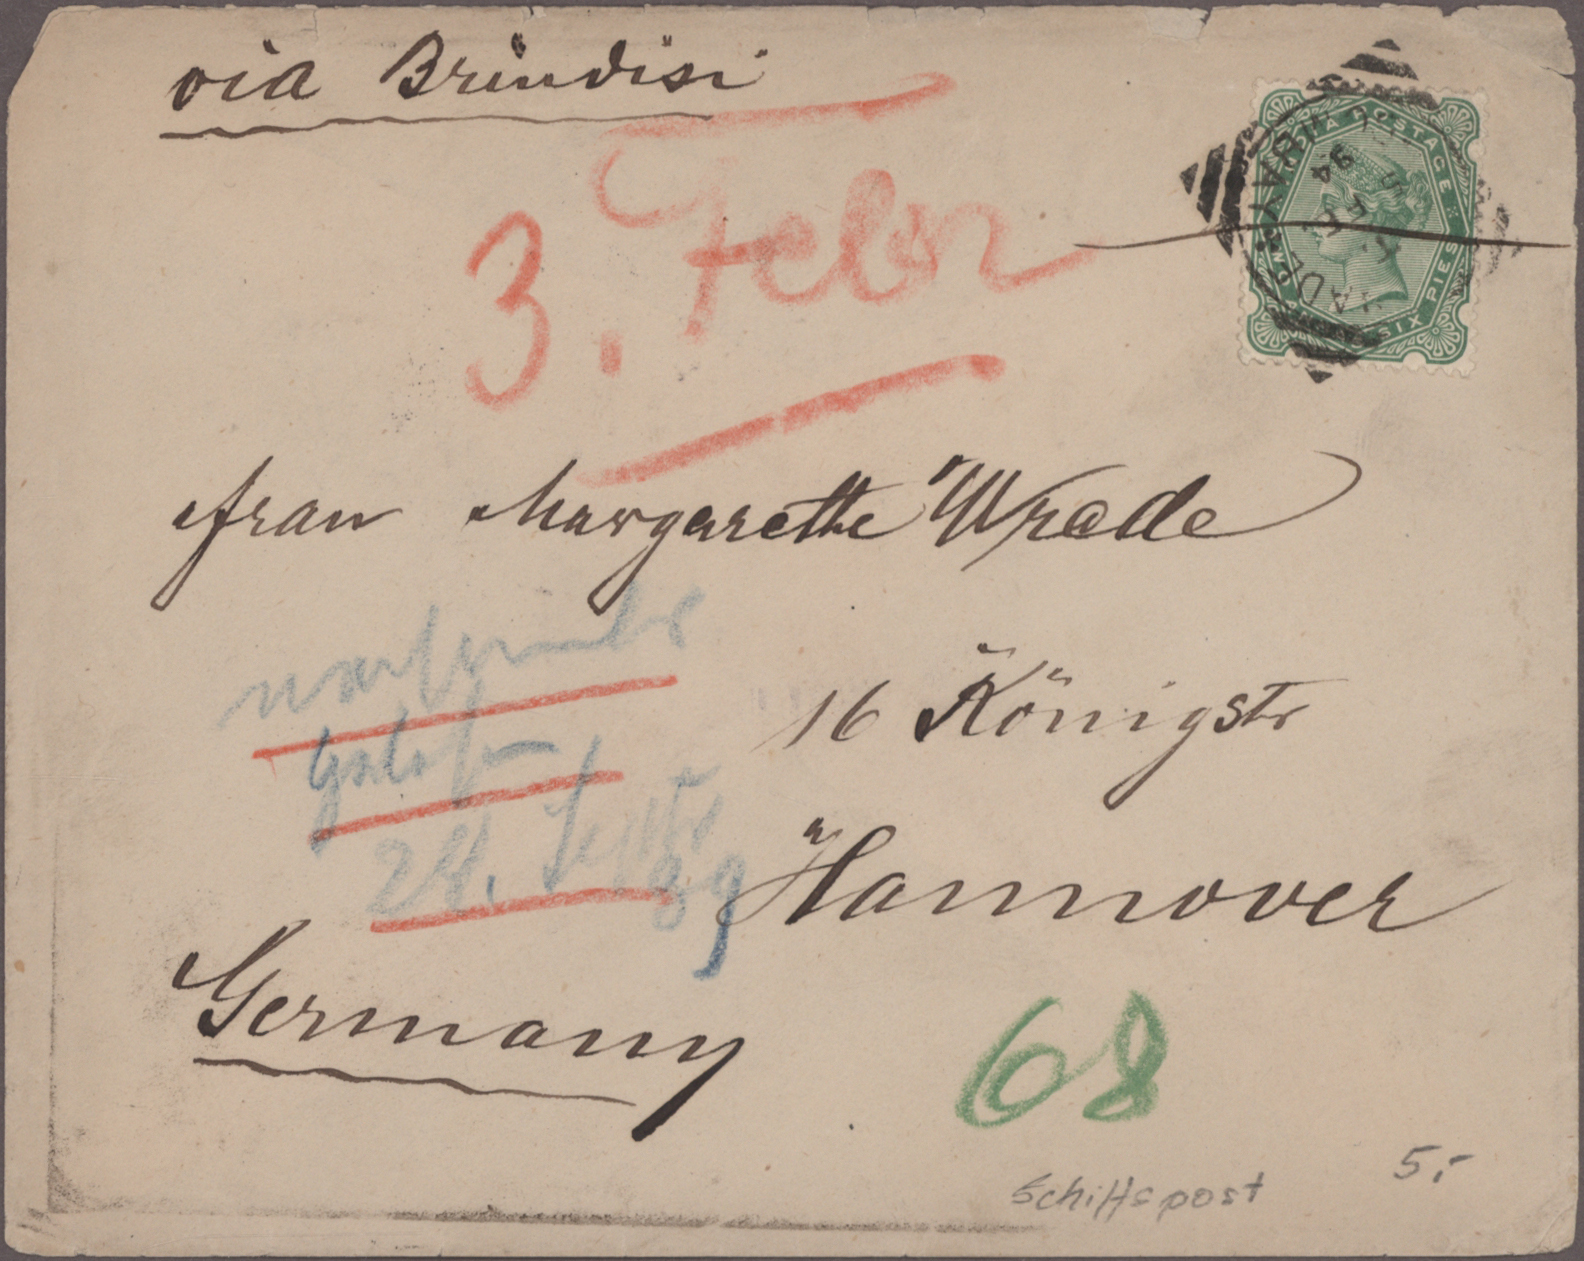 via Brindisi
3. Febr
INDIA POSTAGE
SIX PIES
BOMBAY
5 FE
94
Frau Margarethe Wrede
16 Königstr
24. Septbr
89
Hannover
Germany
68
5,-
Schiffspost